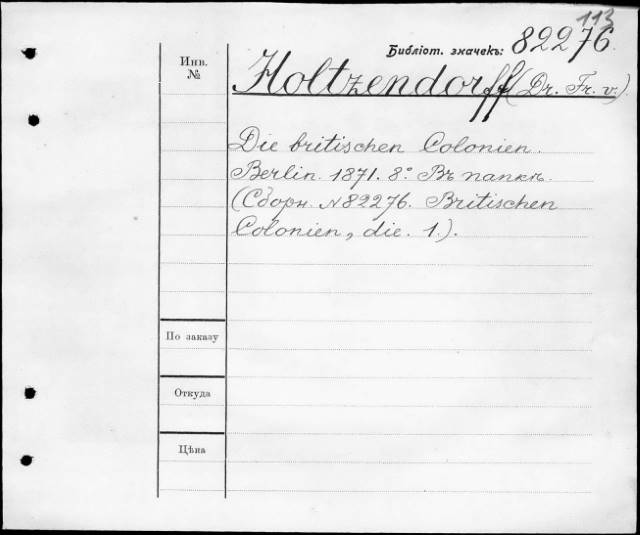 113
Библіот. значекъ: 82276.
Инв. №
Holtzendorff (Dr. Fr. v.).
Die britischen Colonien.
Berlin. 1871. 8° Въ папкѣ.
(Сборн. №82276. Britischen
Colonien, die. 1.).
По заказу
Откуда
Цѣна